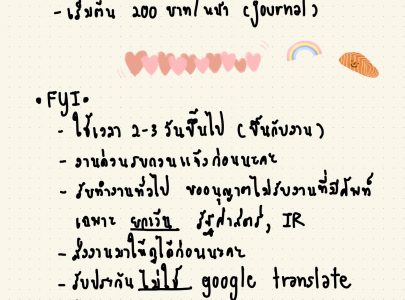 - เริ่มต้น 200 บาท/หน้า (Journal)
•FYI•
- ใช้เวลา 2-3 วันขึ้นไป (ขึ้นกับงาน)
- งานด่วนรบกวนแจ้งก่อนนะคะ
- รับทำงานทั่วไป ขออนุญาตไม่รับงานที่มีศัพท์
เฉพาะ ยกเว้น รัฐศาสตร์, IR
- ส่งงานมาให้ดูได้ก่อนนะคะ
- รับประกัน ไม่ใช้ google translate